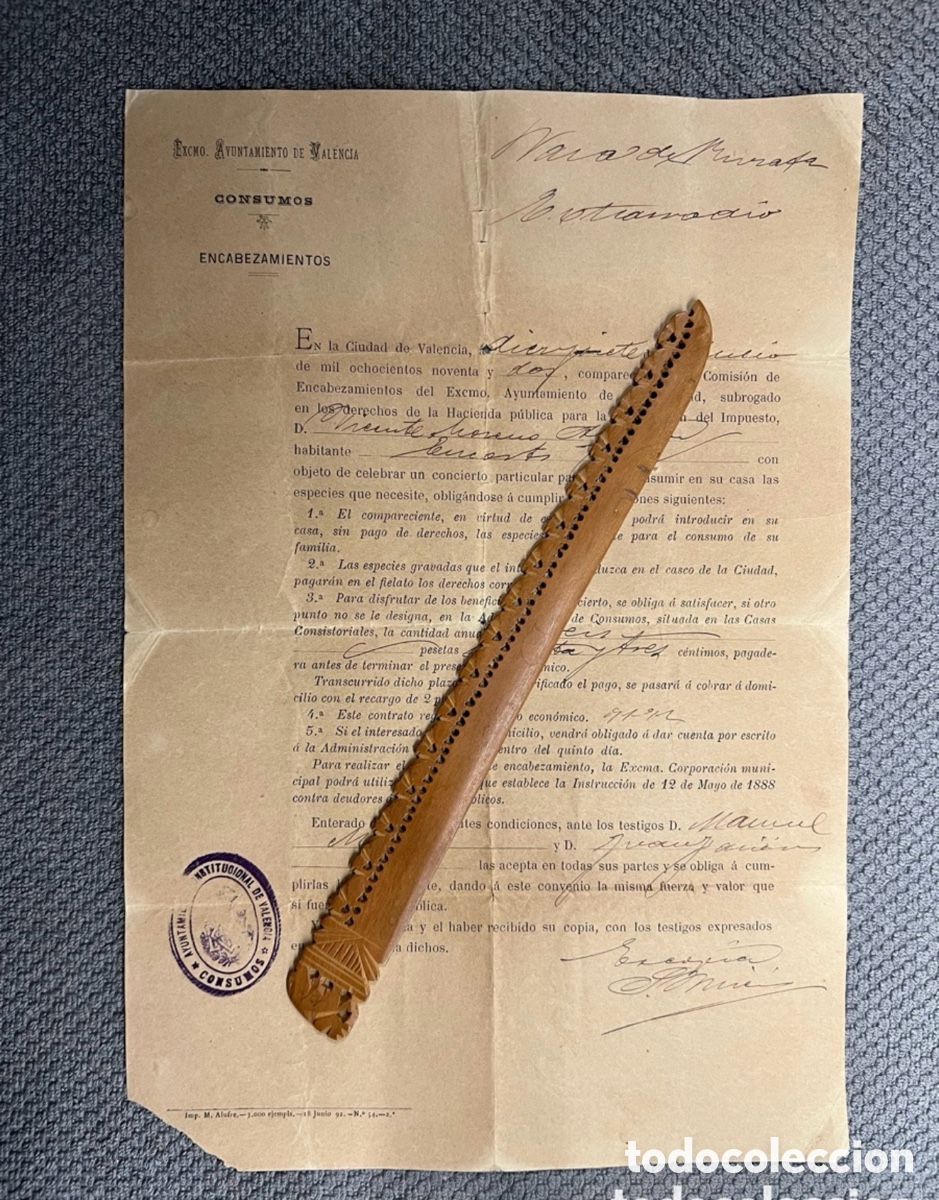 EXCMO. AYUNTAMIENTO DE VALENCIA
CONSUMOS
ENCABEZAMIENTOS
Extrarradio
EN la Ciudad de Valencia, diez y siete Julio
de mil ochocientos noventa y dos, compare Comisión de
Encabezamientos del Excmo. Ayuntamiento de d, subrogado
en los derechos de la Hacienda pública para la n del Impuesto,
D. Vicente Moreno
habitante con
objeto de celebrar un concierto particular pa nsumir en su casa las
especies que necesite, obligándose á cumplir ones siguientes:
1.ª El compareciente, en virtud de podrá introducir en su
casa, sin pago de derechos, las especie te para el consumo de su
familia.
2.ª Las especies gravadas que el int duzca en el casco de la Ciudad,
pagarán en el fielato los derechos corr
3.ª Para disfrutar de los benefic cierto, se obliga á satisfacer, si otro
punto no se le designa, en la A de Consumos, situada en las Casas
Consistoriales, la cantidad anu
pesetas y tres céntimos, pagade-
ra antes de terminar el prese mico.
Transcurrido dicho plazo rificado el pago, se pasará á cobrar á domi-
cilio con el recargo de 2 p
4.ª Este contrato re o económico.
5.ª Si el interesado micilio, vendrá obligado á dar cuenta por escrito
á la Administración entro del quinto día.
Para realizar el e encabezamiento, la Excma. Corporación muni-
cipal podrá utiliz que establece la Instrucción de 12 de Mayo de 1888
contra deudores blicos.
Enterado ntes condiciones, ante los testigos D. Manuel
M y D. Juan
las acepta en todas sus partes y se obliga á cum-
plirlas te, dando á este convenio la misma fuerza y valor que
si fue ólica.
Y a y el haber recibido su copia, con los testigos expresados
en a dichos.
Es copia
AYUNTAMI NSTITUCIONAL DE VALENCIA
★ CONSUMOS ★
Imp. M. Alufre.—3.000 ejempls.—18 Junio 92.—N.º 14.—2.ª
todocoleccion
todocoleccion